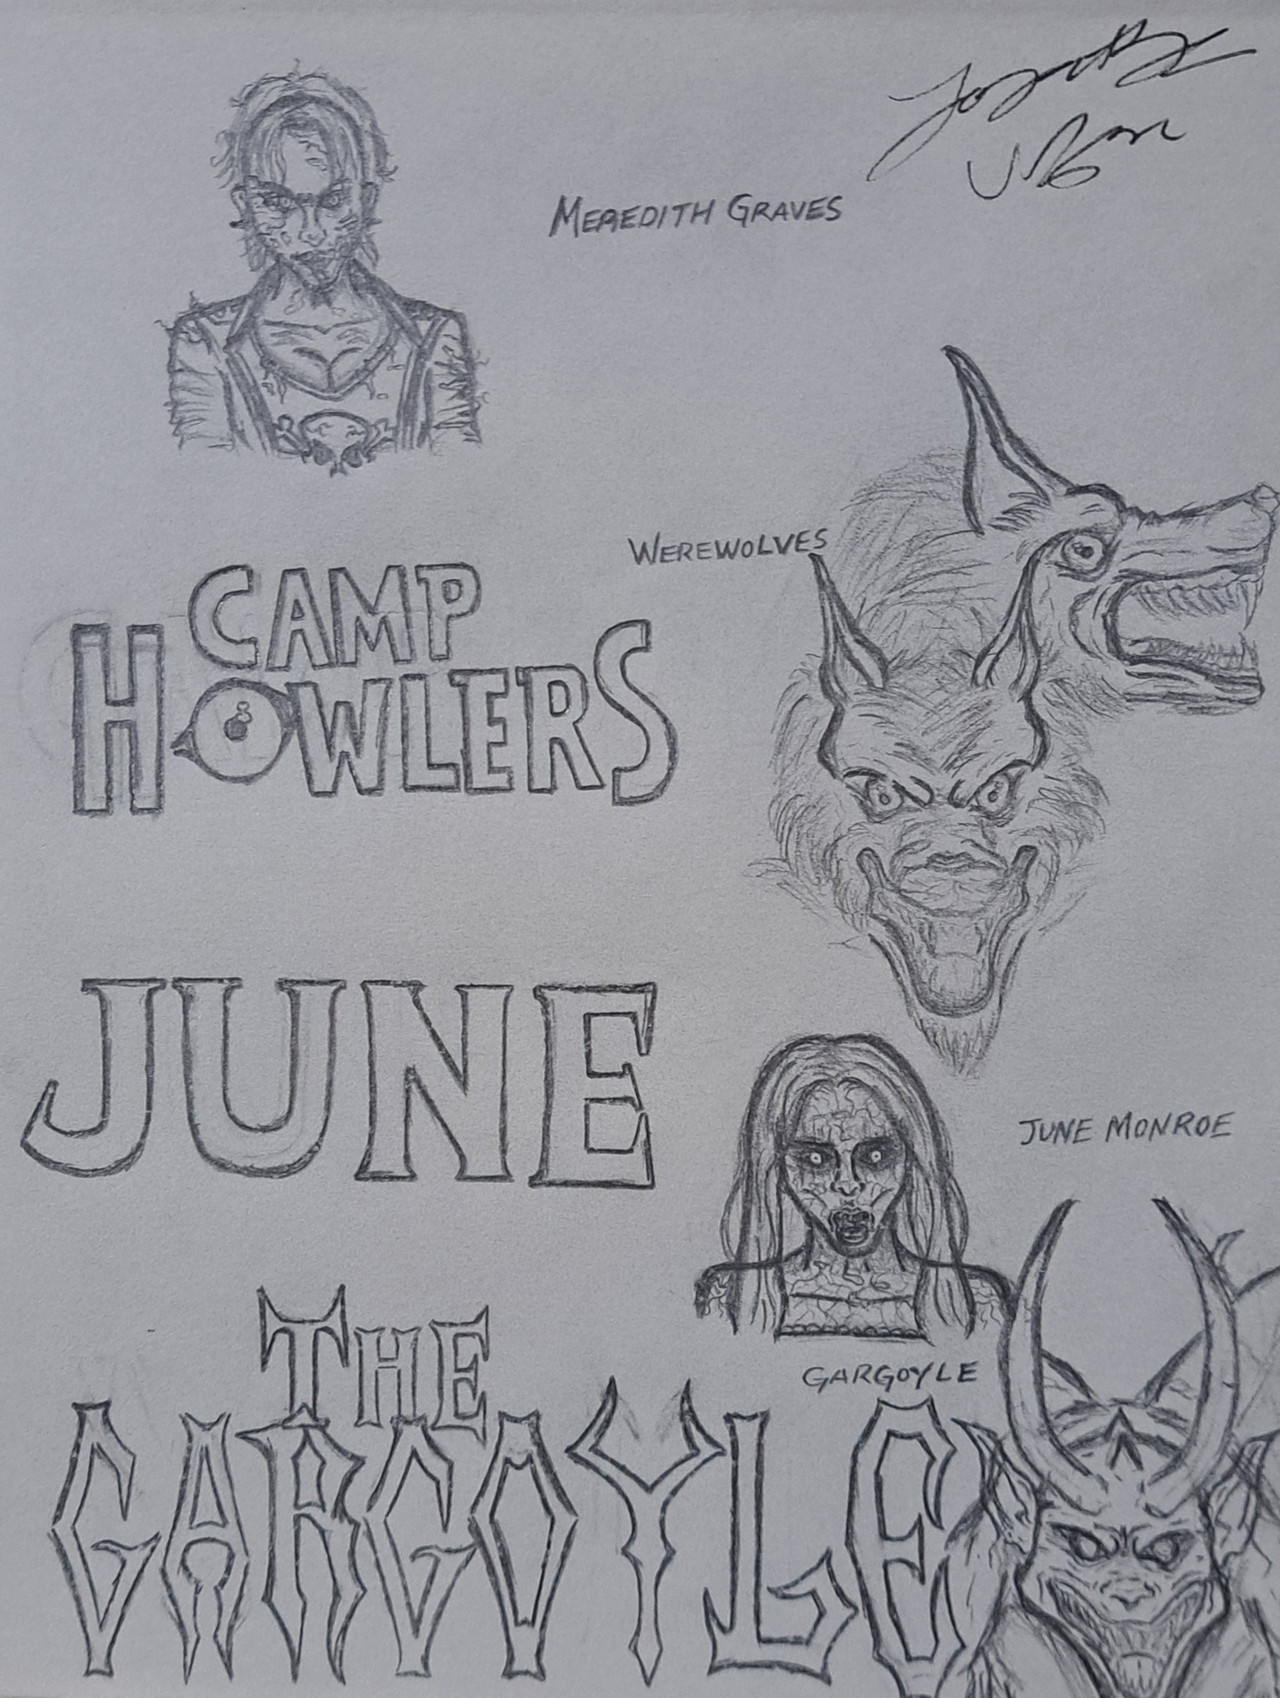 MEREDITH GRAVES
WEREWOLVES
CAMP
HOWLERS
JUNE
JUNE MONROE
GARGOYLE
THE
GARGOYLE